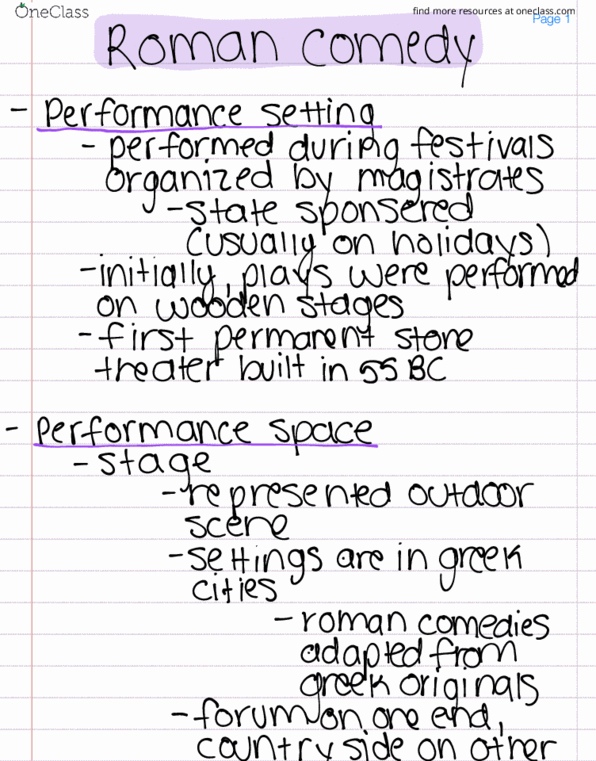 OneClass
find more resources at oneclass.com
Page 1
Roman comedy
- Performance setting
- performed during festivals
organized by magistrates
- state sponsered
(usually on holidays)
- initially, plays were performed
on wooden stages
- first permanent stone
theater built in 55 BC
- Performance space
- stage
- represented outdoor
scene
- settings are in greek
cities
- roman comedies
adapted from
greek originals
- forum on one end,
countryside on other